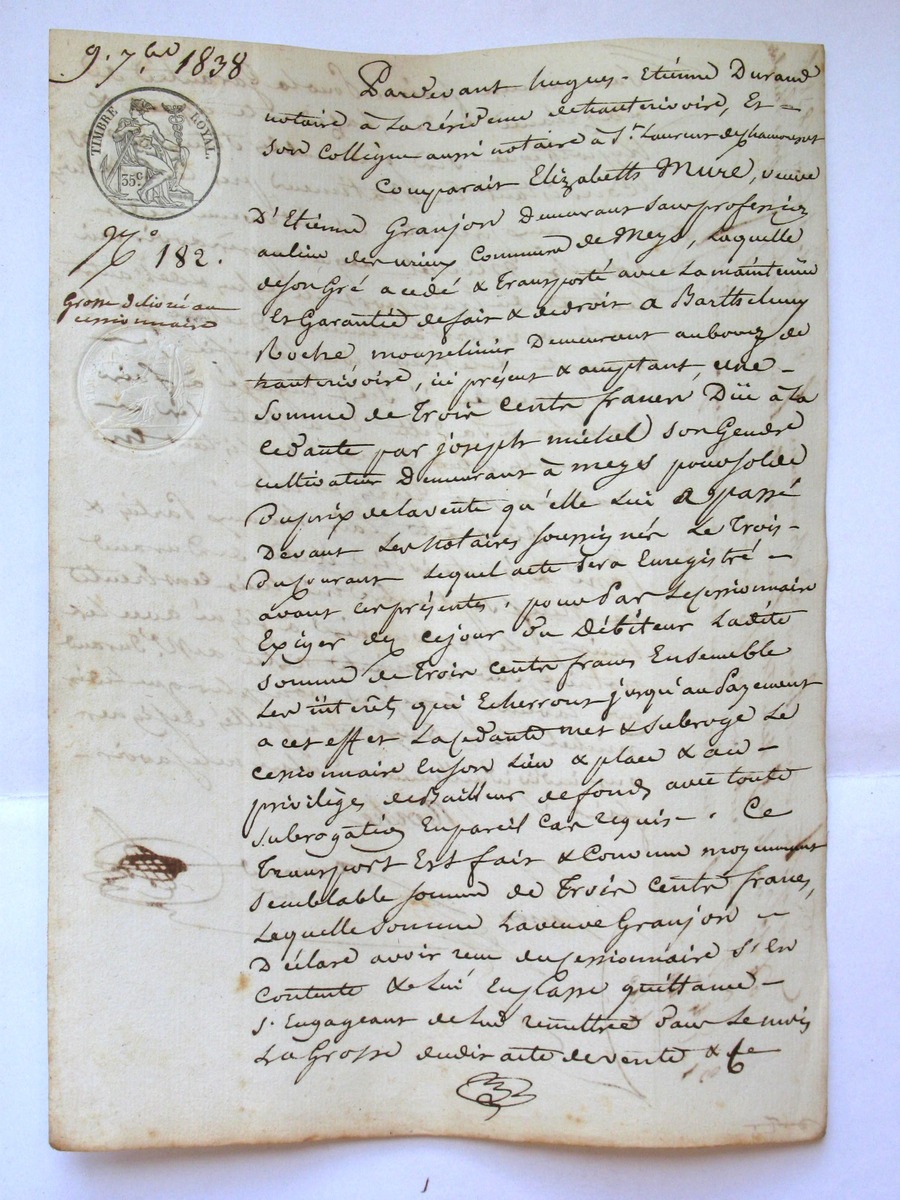 9. 7bre 1838
TIMBRE ROYAL.
35c
N.o 182.
Grosse délivrée au
cessionnaire
Pardevant hugues-Etienne Durand
notaire à La résidence de hauterivoire, Et
son Collègue aussi notaire à St. Laurent de chamousset
Comparait Elizabeth Mure, veuve
D'Etienne Granjon Demeurant sans profession
au lieu des Commune de Meys, Laquelle
de son Gré a cédé & transporté avec La maintenue
Et Garantie de fait & de droit a Barthelemy
Roche, mousselinier Demeurant au bourg de
hauterivoire, ici présent & acceptant, une
somme de Trois cents francs Düe à La
cédante par joseph michel son Gendre
cultivateur Demeurant à meys pour solde
du prix de la vente qu'elle Lui a passé
Devant Les Notaires soussignés Le Trois
du courant Lequel acte sera Enregistré
avant ces présentes. pour par Le cessionnaire
Exiger dès ce jour du Débiteur Ladite
somme de Trois cents francs Ensemble
Les intérêts qui Echerront jusqu'au Payement
a cet effet La cédante met & subroge Le
cessionnaire En son Lieu & place & au
privilège de Bailleur de fonds avec toute
subrogation En pareil cas requise. Ce
Transport Est fait & Convenu moyennant
semblable somme de Trois cents francs,
Laquelle somme La veuve Granjon
Déclare avoir reçu du cessionnaire s'en
contente & Lui En passe quittance
s'Engageant de Lui remettre dans Le mois
La Grosse dudit acte de vente &